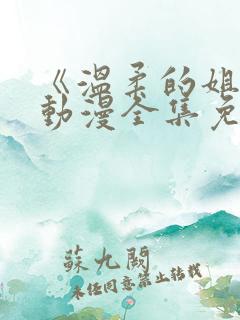 《温柔的姐
動漫全集免
蘇九闕
未經同意禁止轉載